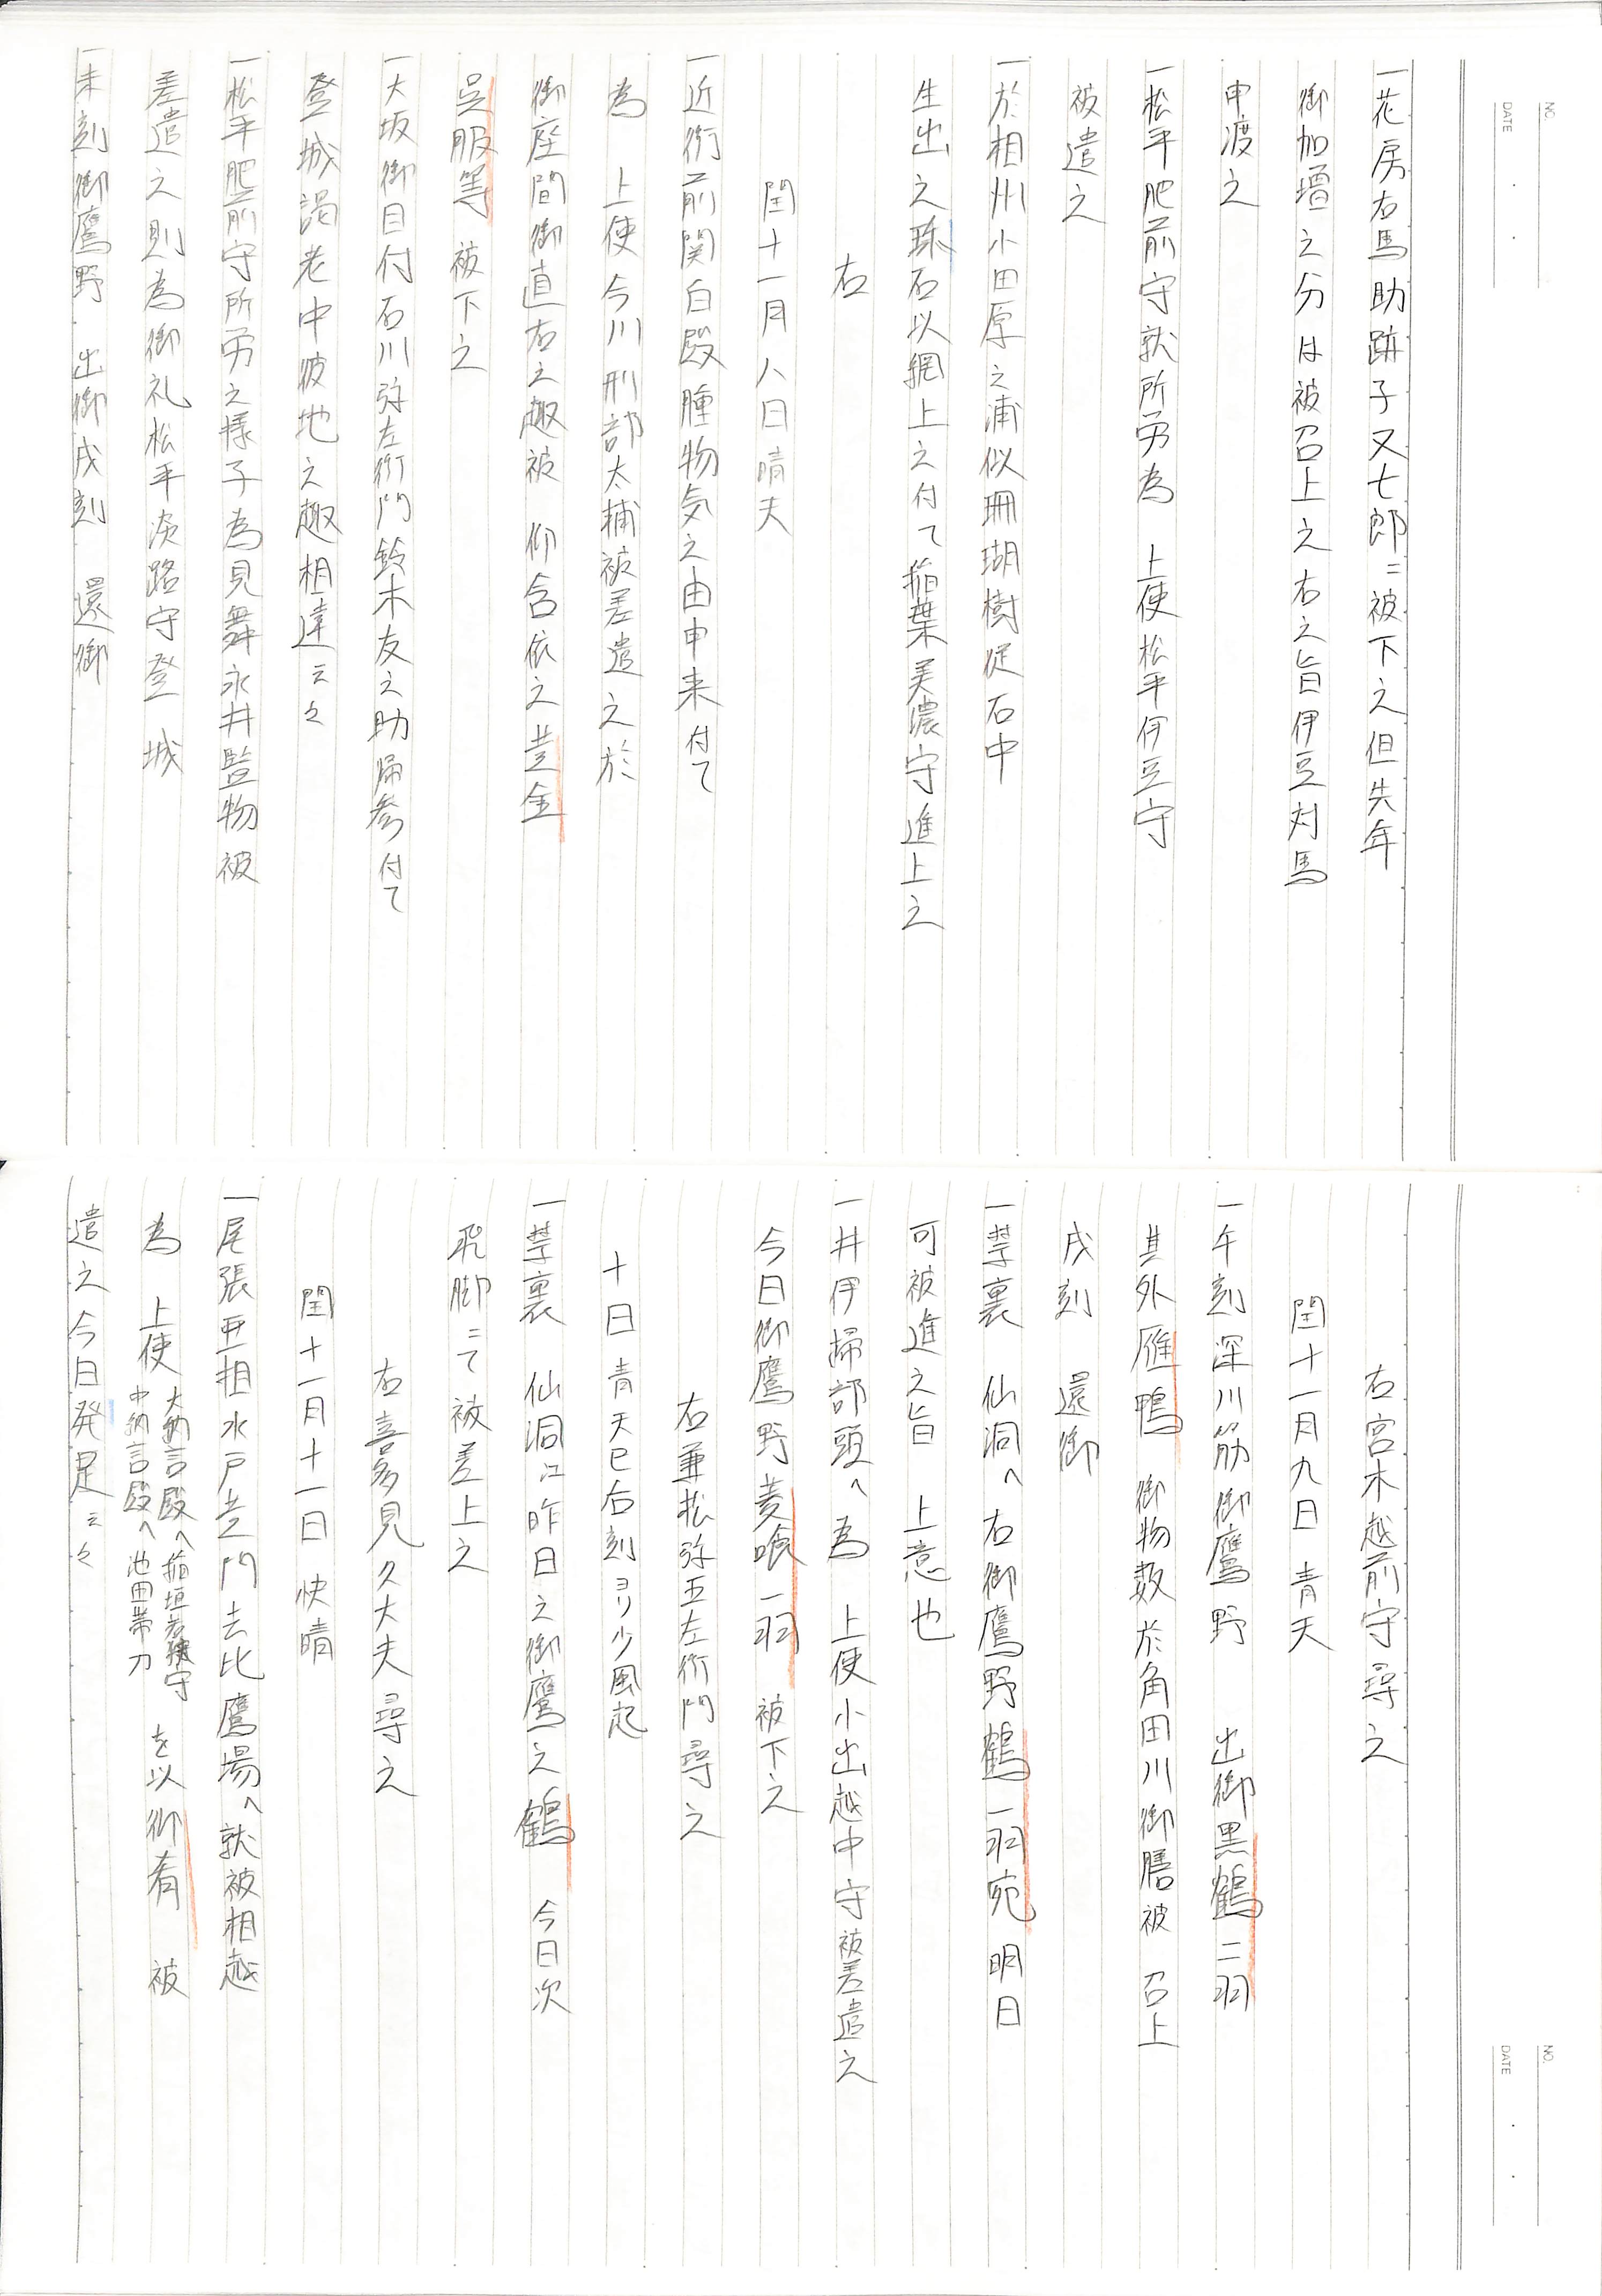 NO.
DATE
一花房右馬助跡子又七郎ニ被下之但先年
御加増之分は被召上之右之旨伊豆対馬
申渡之
一松平肥前守就所労為 上使松平伊豆守
被遣之
一於相州小田原之浦似珊瑚樹従石中
生出之珠石以網上之付て稲葉美濃守進上之
右
閏十一月八日晴天
一近衛前関白殿腫物気之由申来付て
為 上使今川刑部太輔被差遣之於
御座間御直右之趣被 仰含依之黄金
呉服等 被下之
一大坂御目付石川弥左衛門鈴木友之助帰参付て
登城謁老中彼地之趣相達云々
一松平肥前守所労之様子為見舞永井監物被
差遣之則為御礼松平淡路守登 城
一未刻御鷹野 出御戌刻 還御
NO.
DATE
右宮木越前守尋之
閏十一月九日 青天
一午刻深川筋御鷹野 出御黒鶴二羽
其外雁鴨 御物数於角田川御膳被 召上
戌刻 還御
一禁裏 仙洞へ右御鷹野鶴一羽宛明日
可被進之旨 上意也
一井伊掃部頭へ為 上使小出越中守被差遣之
今日御鷹野菱喰一羽 被下之
右兼松弥五左衛門尋之
十日 青天巳右刻ヨリ少風起
一禁裏 仙洞江昨日之御鷹之鶴 今日次
飛脚ニて被差上之
右喜多見久太夫尋之
閏十一月十一日 快晴
一尾張亜相水戸黄門去比鷹場へ就被相越
為 上使 大納言殿へ稲垣若狭守 を以御肴 被
中納言殿へ池田帯刀
遣之今日発足云々